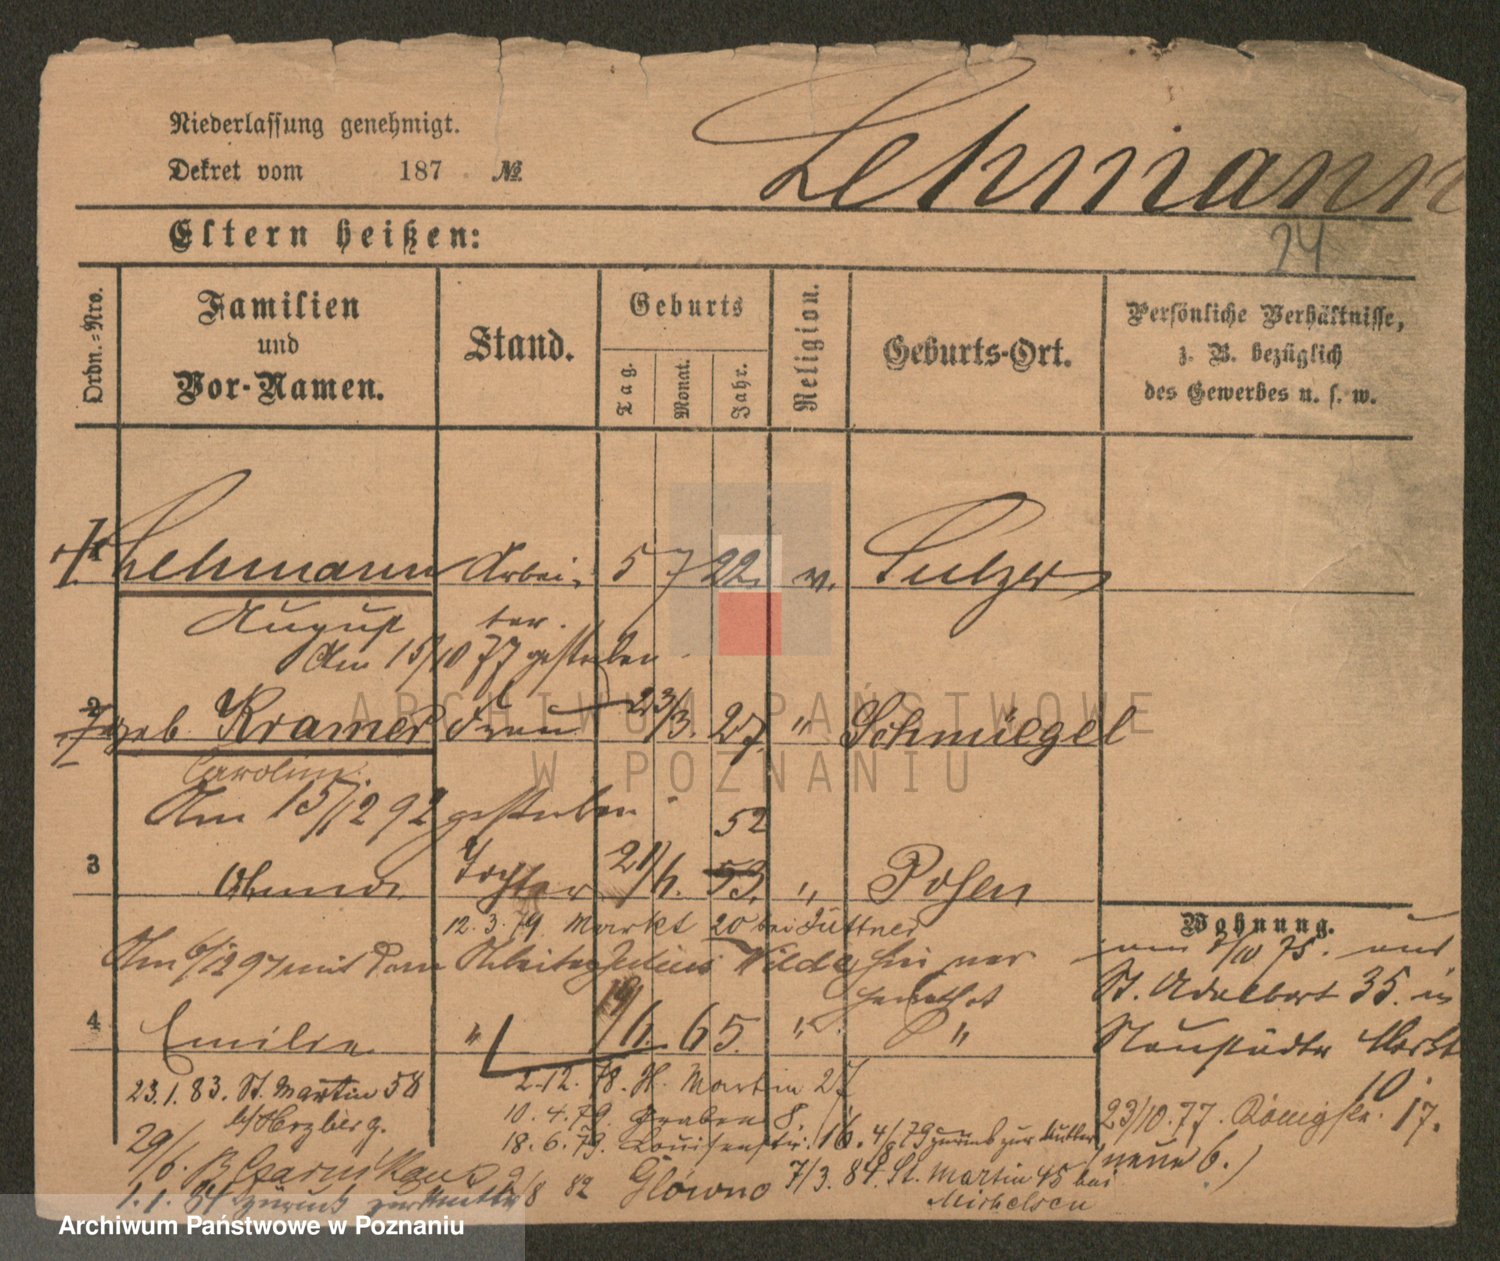 Niederlassung genehmigt.
Dekret vom 187 №
Lehmann
24
Eltern heißen:
Ordn.-Nro.
Familien
und
Vor-Namen.
Stand.
Geburts
Tag.
Monat.
Jahr.
Religion.
Geburts-Ort.
Persönliche Verhältnisse,
z. B. bezüglich
des Gewerbes u. s. w.
1 Lehmann Arbei- 5 7 22. ev. Pulzer
August ter.
Am 15/10 77 gestorben
2 geb. Kramer Frau 23/3. 27. " Schmiegel
Caroline
Am 15/12 92 gestorben
52
3 Tochter 21/6. 53. " Posen
12.3.79. Markt 20 bei Büttner
Wohnung.
Am 6/12 97 mit dem Arbeiter Julius Wilde hier ver-
heirathet
am 2/10 75.
St. Adalbert 35. in
4 Emilie " 19/6. 65. " "
Neustädter Markt
10.
23.1.83. St. Martin 58
2.12.78. St. Martin 27
b/Herzberg.
10.4.79. Graben 8.
23/10.77. Königstr. 17.
18.6.79. Louisenstr. 16. 4/8 79 zurück zur Mutter
(neue 6.)
29/6.
1.1.84 zurück zur Mutter 2/8 82 Glowno 7/3.84. St. Martin 45 bei
Michelsen
ARCHIWUM PAŃSTWOWE
W POZNANIU
Archiwum Państwowe w Poznaniu